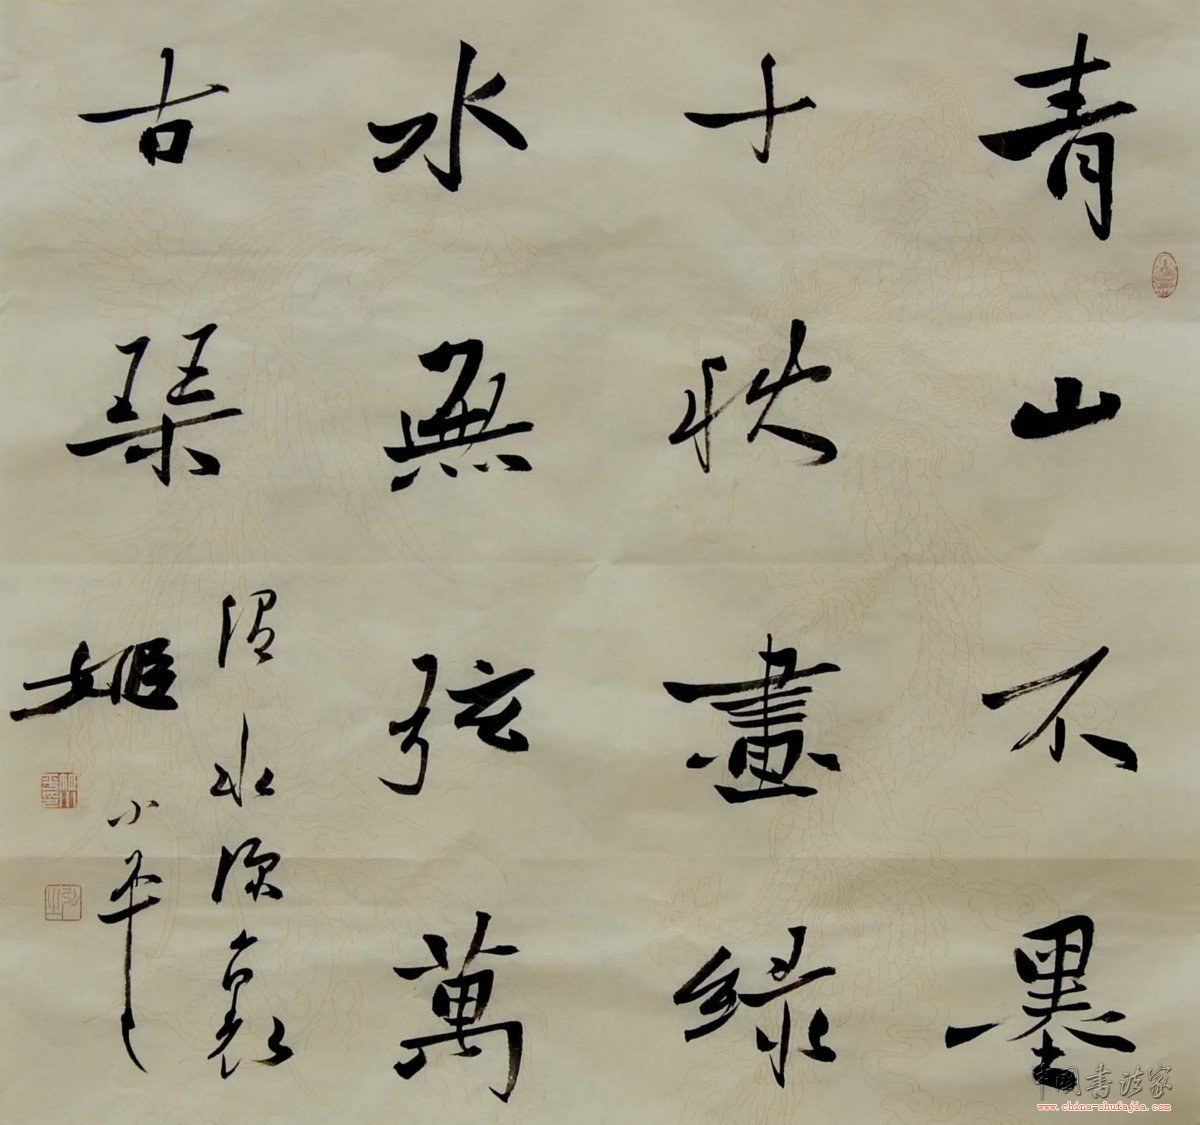 青山不墨
千秋畫綠
水無弦萬
古琴
水源
姬小
中国书法家
www.china-chufajia.com